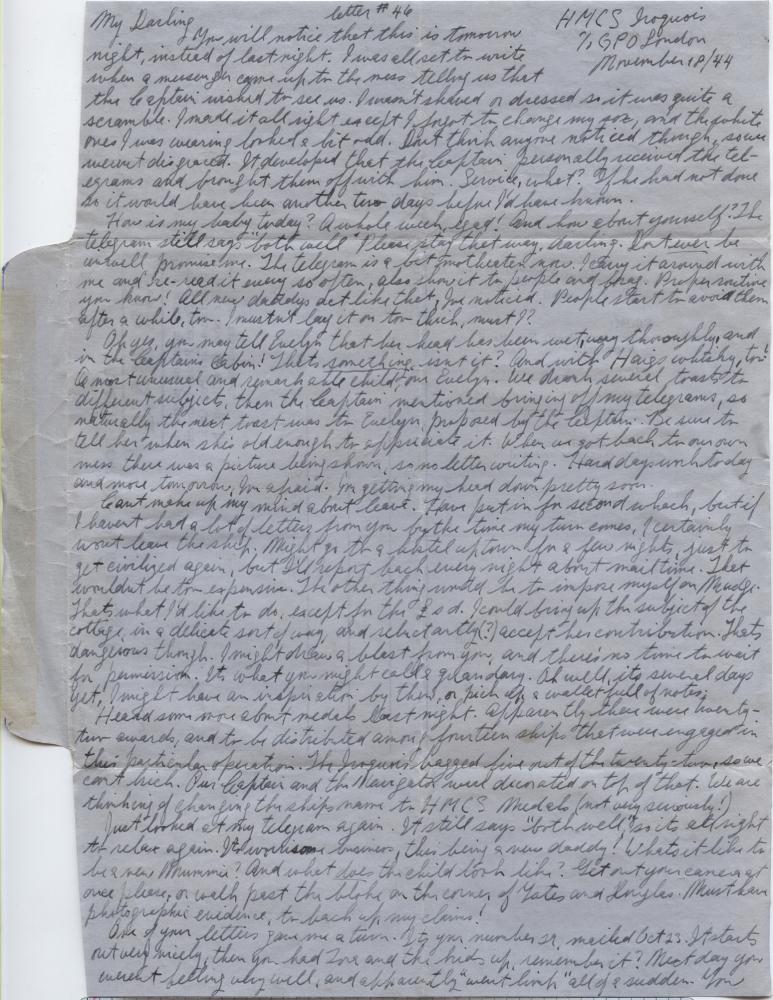 letter # 46
HMCS Iroquois
% GPO London
November 18/44
My Darling,
You will notice that this is tomorrow
night, instead of last night. I was all set to write
when a messenger came up to the mess telling us that
the Captain wished to see us. I wasn't shaved or dressed so it was quite a
scramble. I made it all right except I forgot to change my sox, and the white
ones I was wearing looked a bit odd. Don't think anyone noticed though, so we
weren't disgraced. It developed that the Captain personally received the tel-
egrams and brought them off with him. Service, what? If he had not done
so it would have been another two days before I'd have known.
How is my baby today? A whole week, egad! And how about yourself? The
telegram still says "both well". Please stay that way, darling. Don't ever be
unwell, promise me. The telegram is a bit motheaten now. I carry it around with
me and re-read it every so often, also show it to people and brag. Proper routine
you know! All new daddys act like that, I've noticed. People start to avoid them
after a while, too. I mustn't lay it on too thick, must I?
Oh yes, you may tell Evelyn that her head has been wet, very thoroughly, and
in the Captain's Cabin! That's something, isn't it? And with Haigs whisky, too!
A most unusual and remarkable child, our Evelyn. We drank several toasts to
different subjects, then the Captain mentioned bringing off my telegrams, so
naturally the next toast was to Evelyn, proposed by the Captain. Be sure to
tell her when she's old enough to appreciate it. When we got back to our own
mess there was a picture being shown, so no letter writing. Hard days work today
and more tomorrow, I'm afraid. I'm getting my head down pretty soon.
Can't make up my mind about leave. Have put in for second whack, but if
I haven't had a lot of letters from you by the time my turn comes, I certainly
wont leave the ship. Might go to a hotel uptown for a few nights, just to
get civilized again, but I'll report back every night about mail time. That
wouldn't be too expensive. The other thing would be to impose myself on Madge.
Thats what I'd like to do, except for the £ s d. I could bring up the subject of the
cottage, in a delicate sort of way, and reluctantly(?) accept her contribution. Thats
dangerous though. I might draw a blast from you, and there's no time to wait
for permission. It's what you might call a quandary. Oh well, its several days
yet, I might have an inspiration by then, or pick up a wallet full of notes.
Heard some more about medals last night. Apparently there were twenty-
two awards, and to be distributed among fourteen ships that were engaged in
this particular operation. The Iroquois bagged five out of the twenty-two, so we
can't kick. Our Captain and the Navigator were decorated on top of that. We are
thinking of changing the ships name to HMCS Medals (not very seriously!)
Just looked at my telegram again. It still says "both well," so its all right
to relax again. It's worrisome business, this being a new daddy! Whats it like to
be a new Mummie? And what does the child look like? Get out your camera at
once please, or walk past the bloke on the corner of Yates and Douglas. Must have
photographic evidence, to back up my claims!
One of your letters gave me a turn. Its your number 32, mailed Oct 23. It starts
out very nicely, then you had Zora and the kids up, remember it? Next day you
weren't feeling very well, and apparently "went limp" all of a sudden. You